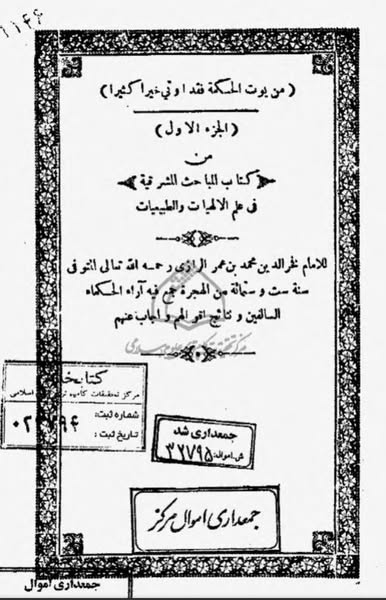 ١١٤۶
(من يوت الحكمة فقد اوتي خيرا كثيرا)
(الجزء الاول)
من
كتاب المباحث المشرقية
في علم الالهيات والطبيعيات
للامام فخر الدين محمد بن عمر الرازي رحمه الله تعالى المتوفى
سنة ست وستمائة من الهجرة جمع فيه آراء الحكماء
السالفين و نتائج اقوالهم واجاب عنهم
مرکز تحقیقات کامپیوتری علوم اسلامی
کتابخانه
مرکز تحقیقات کامپیوتری علوم اسلامی
شماره ثبت:
تاریخ ثبت:
جمعداری شد
ش اموال: ۳۲۷۹۵
جمعداری اموال مرکز
جمعداری اموال